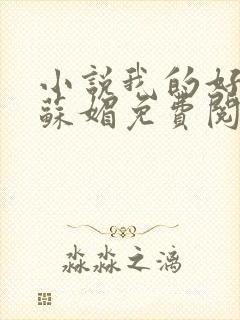 小說我的好
蘇媚免費閱
淼淼之漓